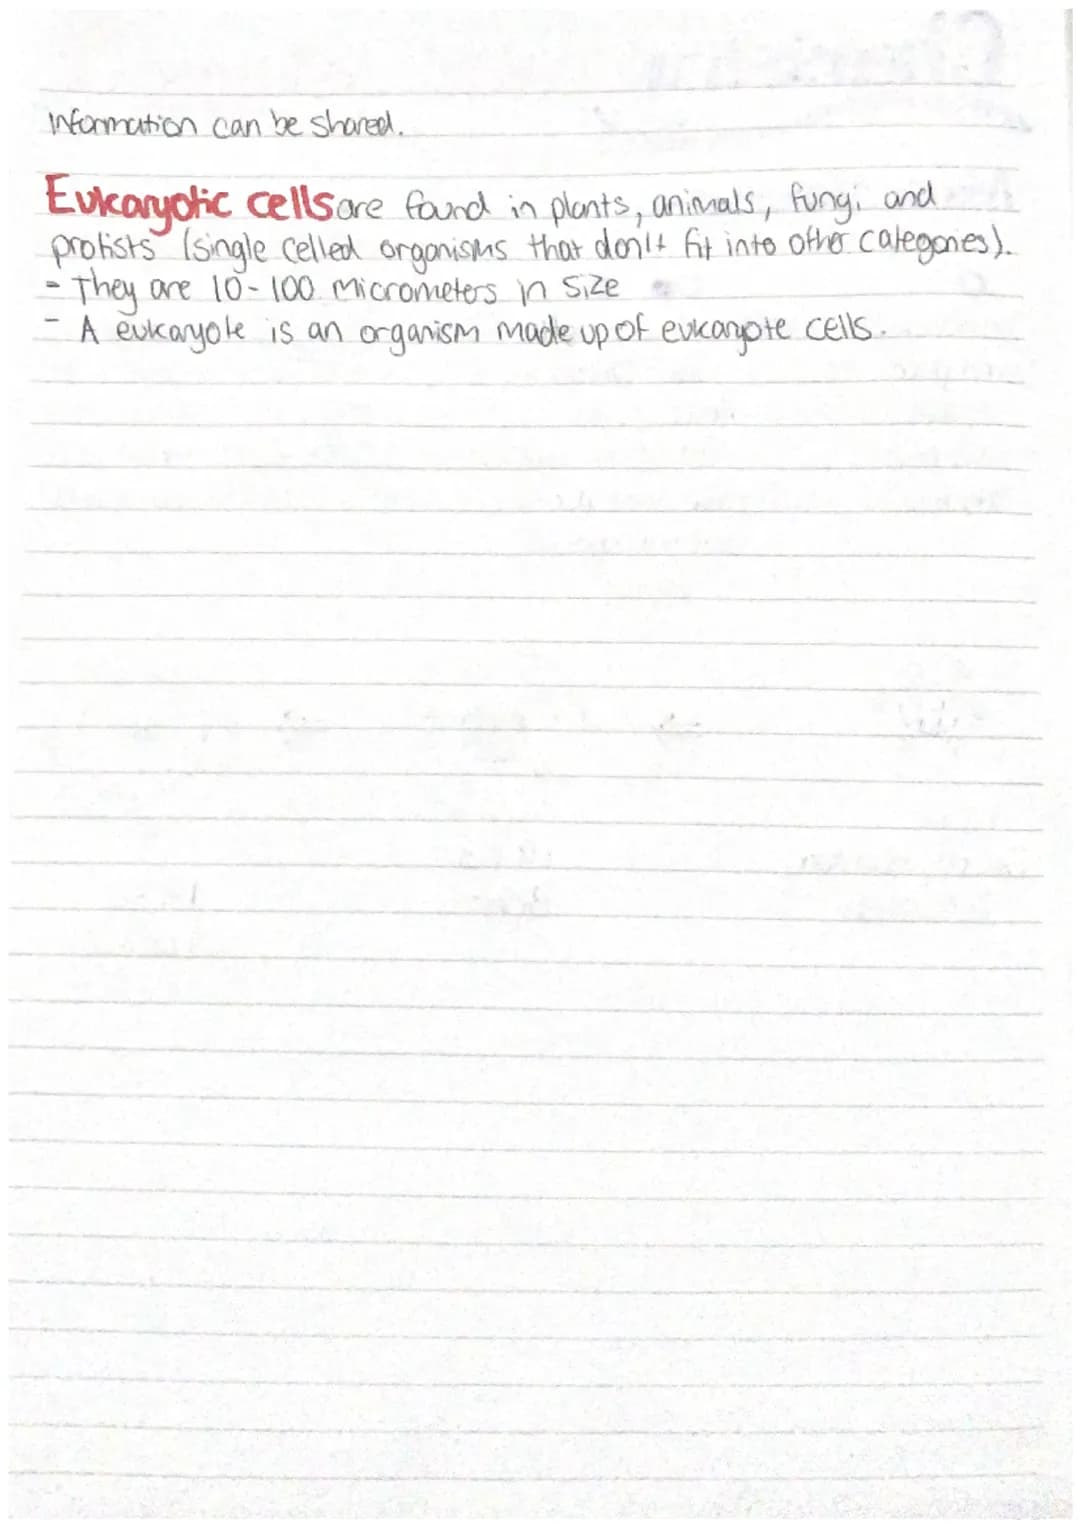 Information can be shared.
Eukaryotic cells are found in plants, animals, fungi and
protists (single celled organisms that don't fit into other categories).
- They are 10-100 micrometers in size
- A eukaryote is an organism made up of eukaryote cells.